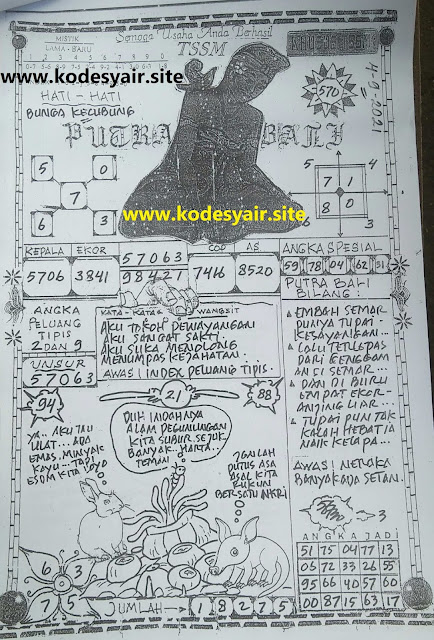 Semoga Usaha Anda Berhasil
MISTIK
LAMA - BARU
TSSM
www.kodesyair.site
HATI - HATI
BUNGA KECUBUNG
570
4-9-2021
PUTRA BALI
5 0
7
6 3
5 4
7 1
8 0
6 3
www.kodesyair.site
KEPALA EKOR
5706 3841
57063
98421
COD AS
7416 8520
ANGKA SPESIAL
59 78 04 62 31
ANGKA
PELUANG
TIPIS
2 DAN 9
UNSUR
57063
KATA - KATA WANGSIT
AKU TOKOH PEWAYANGAN
AKU SANGAT SAKTI
AKU SUKA MENOLONG
MENUMPAS KEJAHATAN.
AWAS! INDEX PELUANG TIPIS.
PUTRA BALI
BILANG:
EMBAH SEMAR
PUNYA TUPAI
KESAYANGAN...
LALU TERLEPAS
DARI GENGGAM
AN SI SEMAR...
DAN DI BURU
EMPAT EKOR
ANJING LIAR...
TUPAI PUN TAK
KALAH HEBAT IA
NAIK KELAPA...
AWAS! NERAKA
BANYAK ADA SETAN.
94
21
88
YA.. AKU TAU
ULAT... ADA
EMAS, MINYAK
KAYU... TAPI
ESOM KITA LOYO
DUH INDAHNYA
ALAM PEGUNUNGAN
KITA SUBUR, SEJUK
BANYAK.. HARTA...
TEMAN
JGNLAH
PUTUS ASA
ASAL KITA
RUKUN
BERSATU NKRI
3
ANGKA JADI
51 75 04 77 13
06 72 33 26 55
95 66 40 57 60
00 87 15 63 17
6 3
7 5
JUMLAH → 1 8 2 7 5